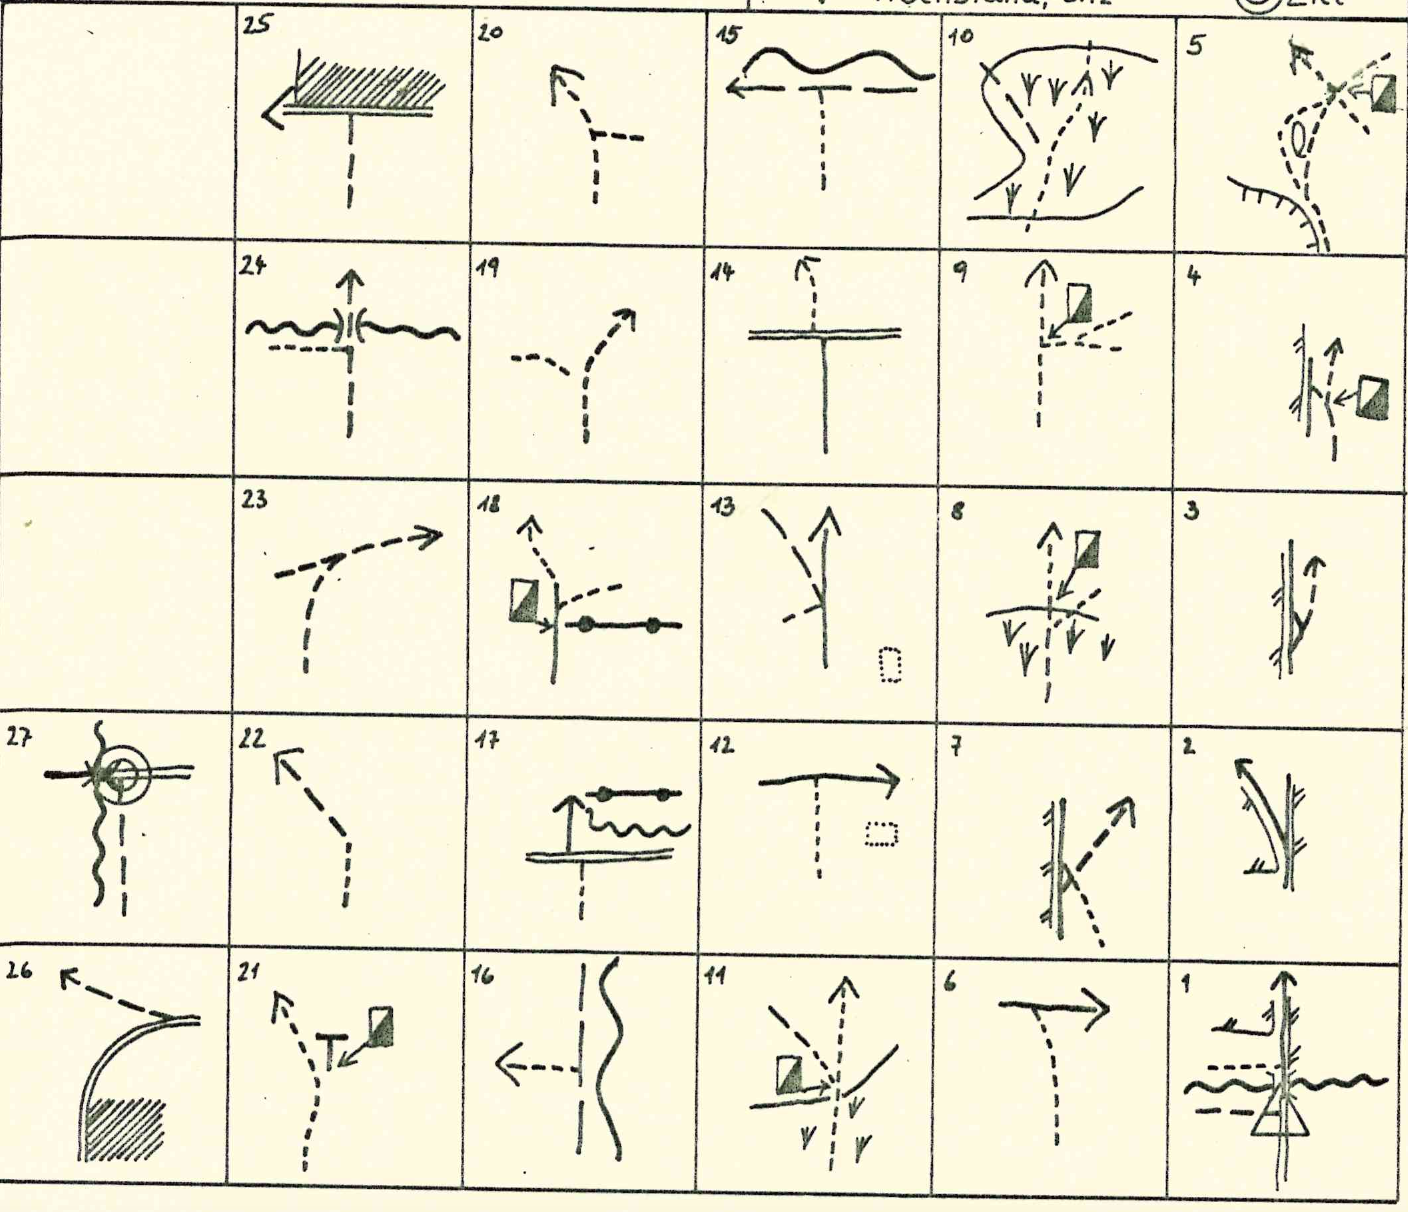 Ziel
25 20 15 10 5
24 19 14 9 4
23 18 13 8 3
27 22 17 12 7 2
26 21 16 11 6 1